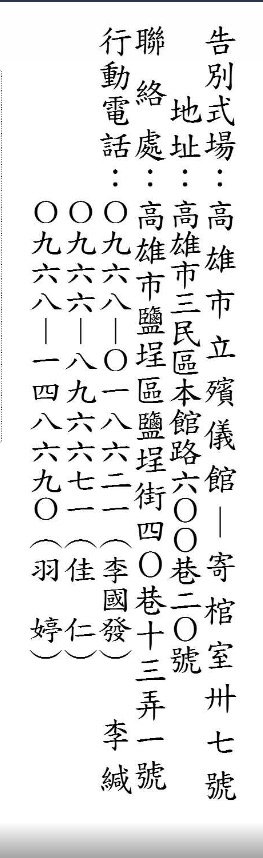 告別式場：高雄市立殯儀館－寄棺室卅七號
地址：高雄市三民區本館路六〇〇巷二〇號
聯絡處：高雄市鹽埕區鹽埕街四〇巷十三弄一號
行動電話：〇九六八－〇一八六二一（李國發）　李緘
〇九六六－八九六六七一（佳仁）
〇九六八－一四八六九〇（羽婷）